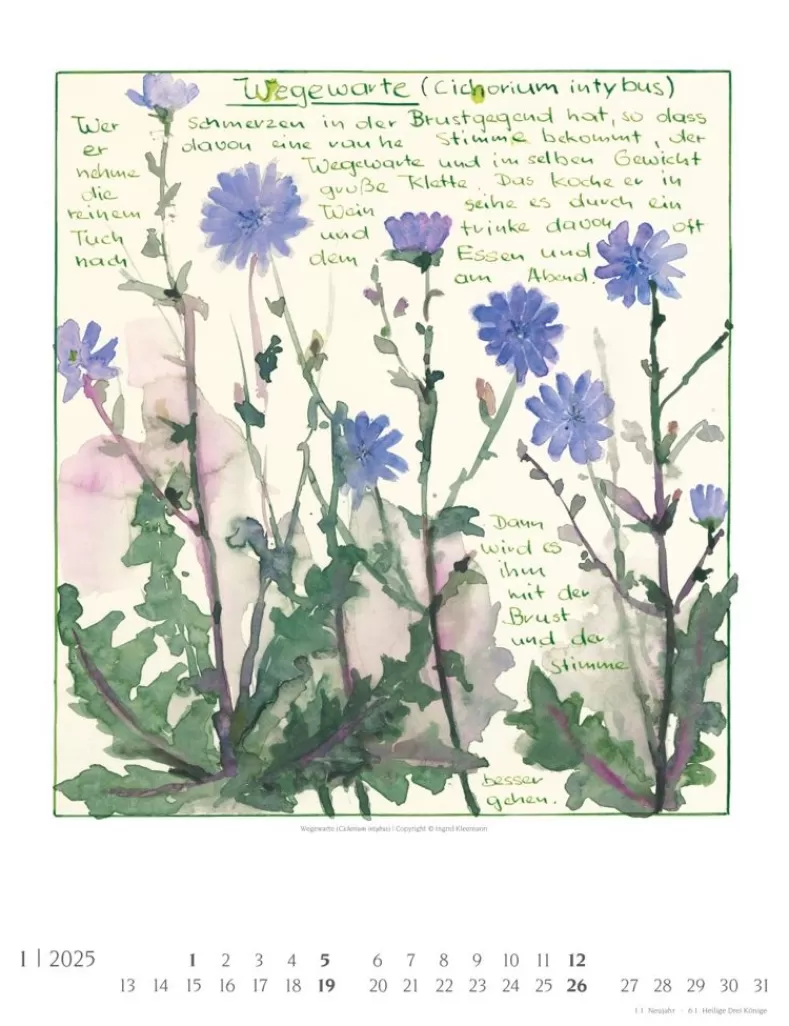 Wegewarte (Cichorium intybus)
Wer schmerzen in der Brustgegend hat, so dass
er davon eine rauhe Stimme bekommt, der
nehme Wegewarte und im selben Gewicht
die große Klette. Das koche er in
reinem Wein seihe es durch ein
Tuch und trinke davon oft
nach dem Essen und
am Abend.
Dann
wird es
ihm
mit der
Brust
und der
Stimme
besser
gehen.
Wegewarte (Cichorium intybus) | Copyright © Ingrid Kleemann
1 | 2025
1 2 3 4 5 6 7 8 9 10 11 12
13 14 15 16 17 18 19 20 21 22 23 24 25 26 27 28 29 30 31
1.1. Neujahr · 6.1. Heilige Drei Könige